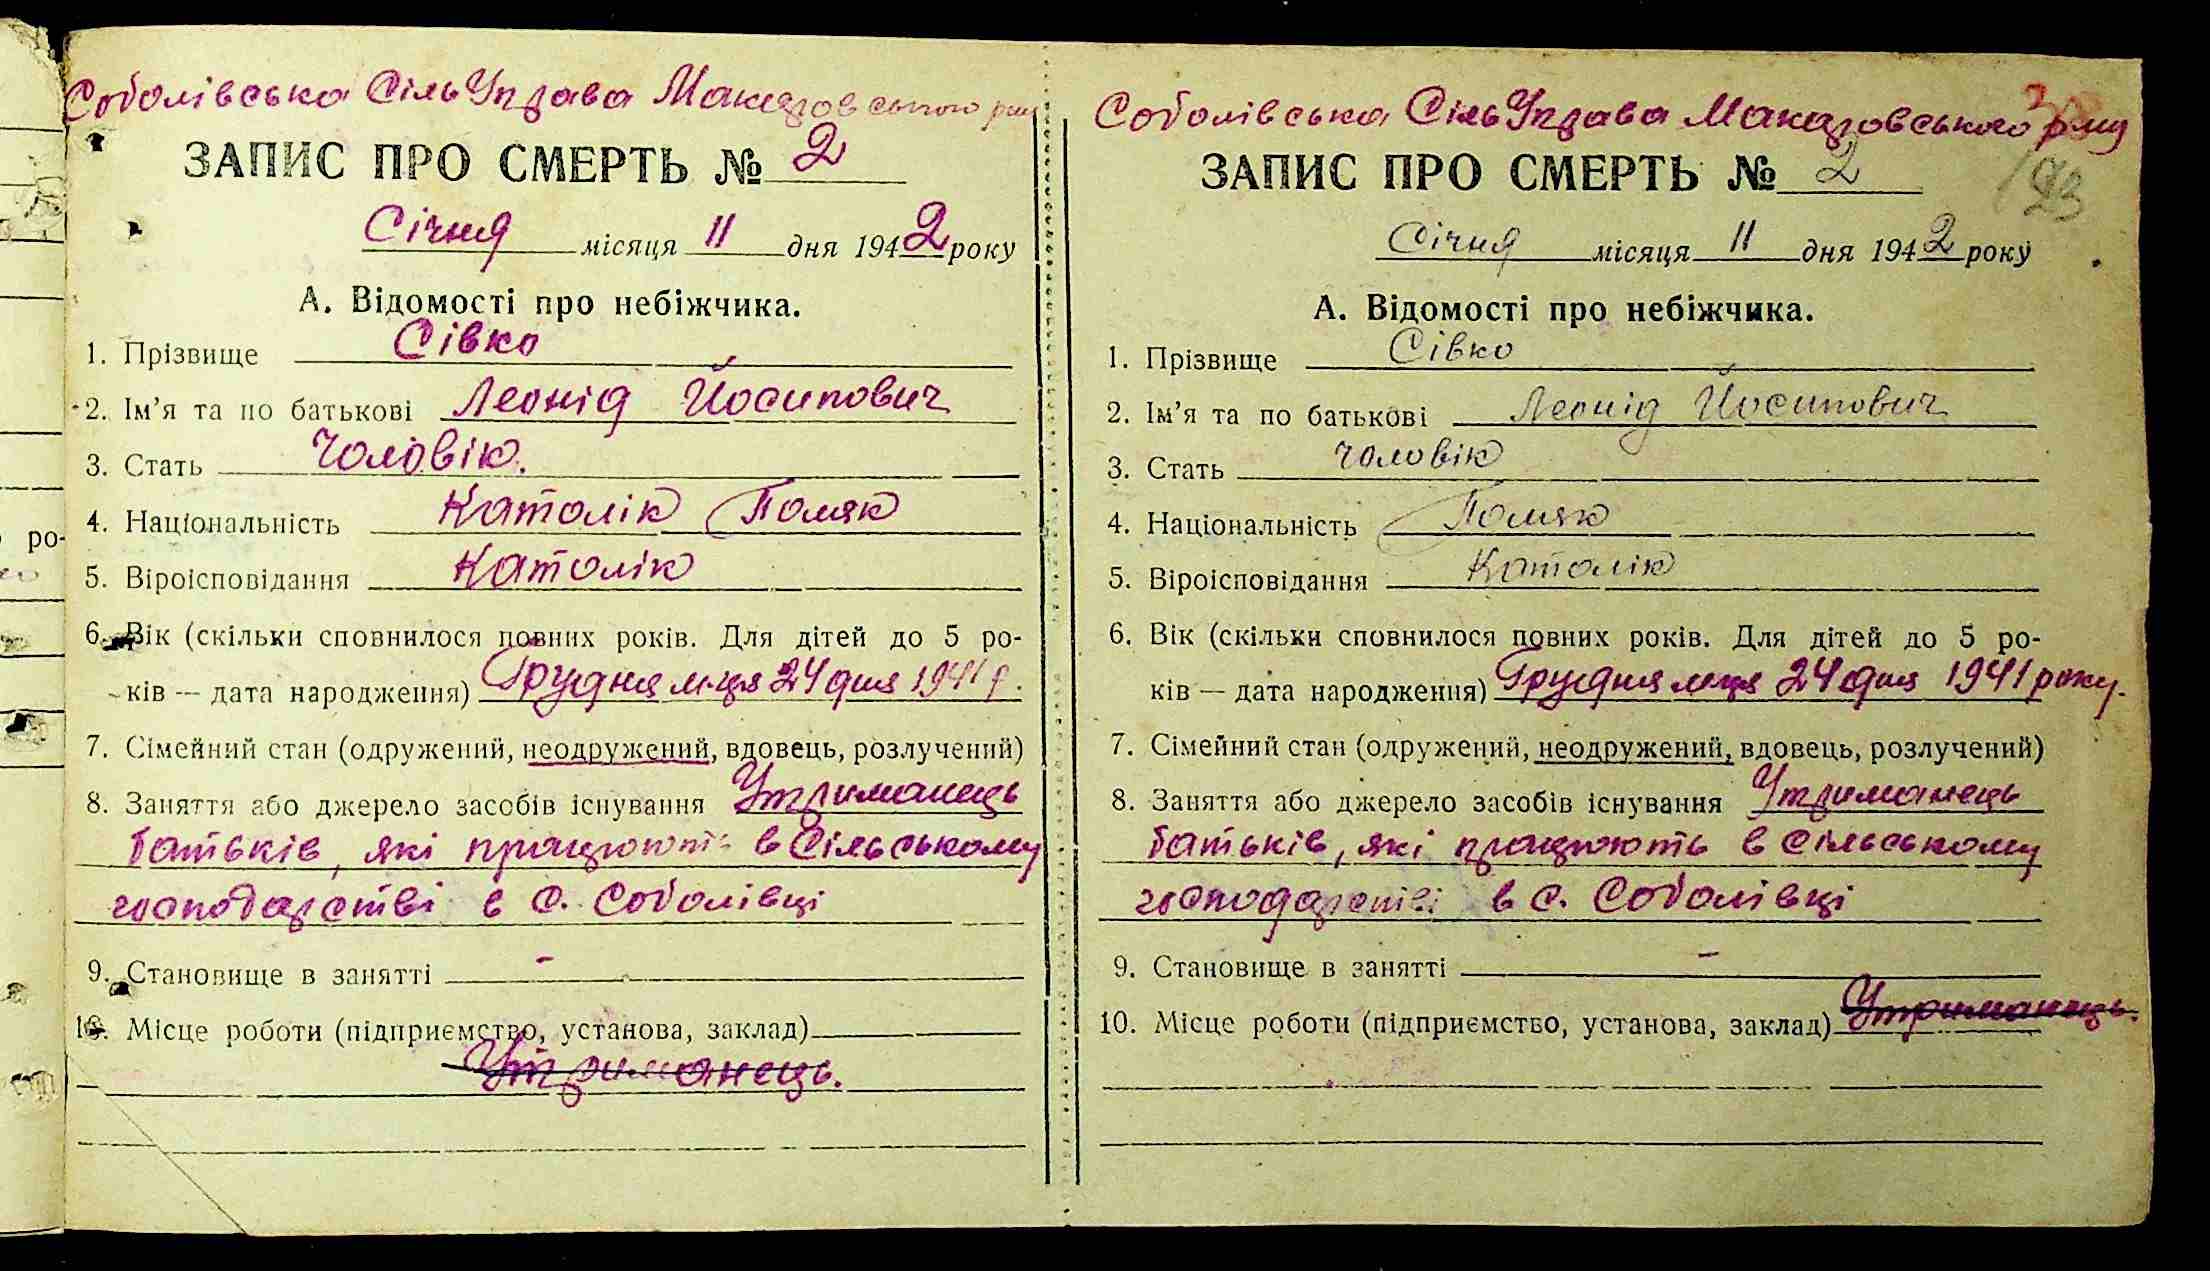 Соболівська СільУправа Макаровського р-ну
ЗАПИС ПРО СМЕРТЬ № 2
Січня місяця 11 дня 1942 року
А. Відомості про небіжчика.
1. Прізвище Сівко
2. Ім'я та по батькові Леонід Йосипович
3. Стать чоловік.
4. Національність Католік (Поляк
5. Віроісповідання Католік
6. Вік (скільки сповнилося повних років. Для дітей до 5 ро-
ків — дата народження) Грудня м-ця 24 дня 1941 р.
7. Сімейний стан (одружений, неодружений, вдовець, розлучений)
8. Заняття або джерело засобів існування Утриманець
батьків, які працюють в Сільському
господарстві в с. Соболівці
9. Становище в занятті -
10. Місце роботи (підприємство, установа, заклад)
Утриманець.
Соболівська СільУправа Макаровського р-ну
ЗАПИС ПРО СМЕРТЬ № 2
Січня місяця 11 дня 1942 року
А. Відомості про небіжчика.
1. Прізвище Сівко
2. Ім'я та по батькові Леонід Йосипович
3. Стать чоловік
4. Національність (Поляк
5. Віроісповідання Католік
6. Вік (скільки сповнилося повних років. Для дітей до 5 ро-
ків — дата народження) Грудня м-ця 24 дня 1941 року.
7. Сімейний стан (одружений, неодружений, вдовець, розлучений)
8. Заняття або джерело засобів існування Утриманець
батьків, які працюють в сільському
господарстві в с. Соболівці
9. Становище в занятті -
10. Місце роботи (підприємство, установа, заклад) Утриманець.
ро-